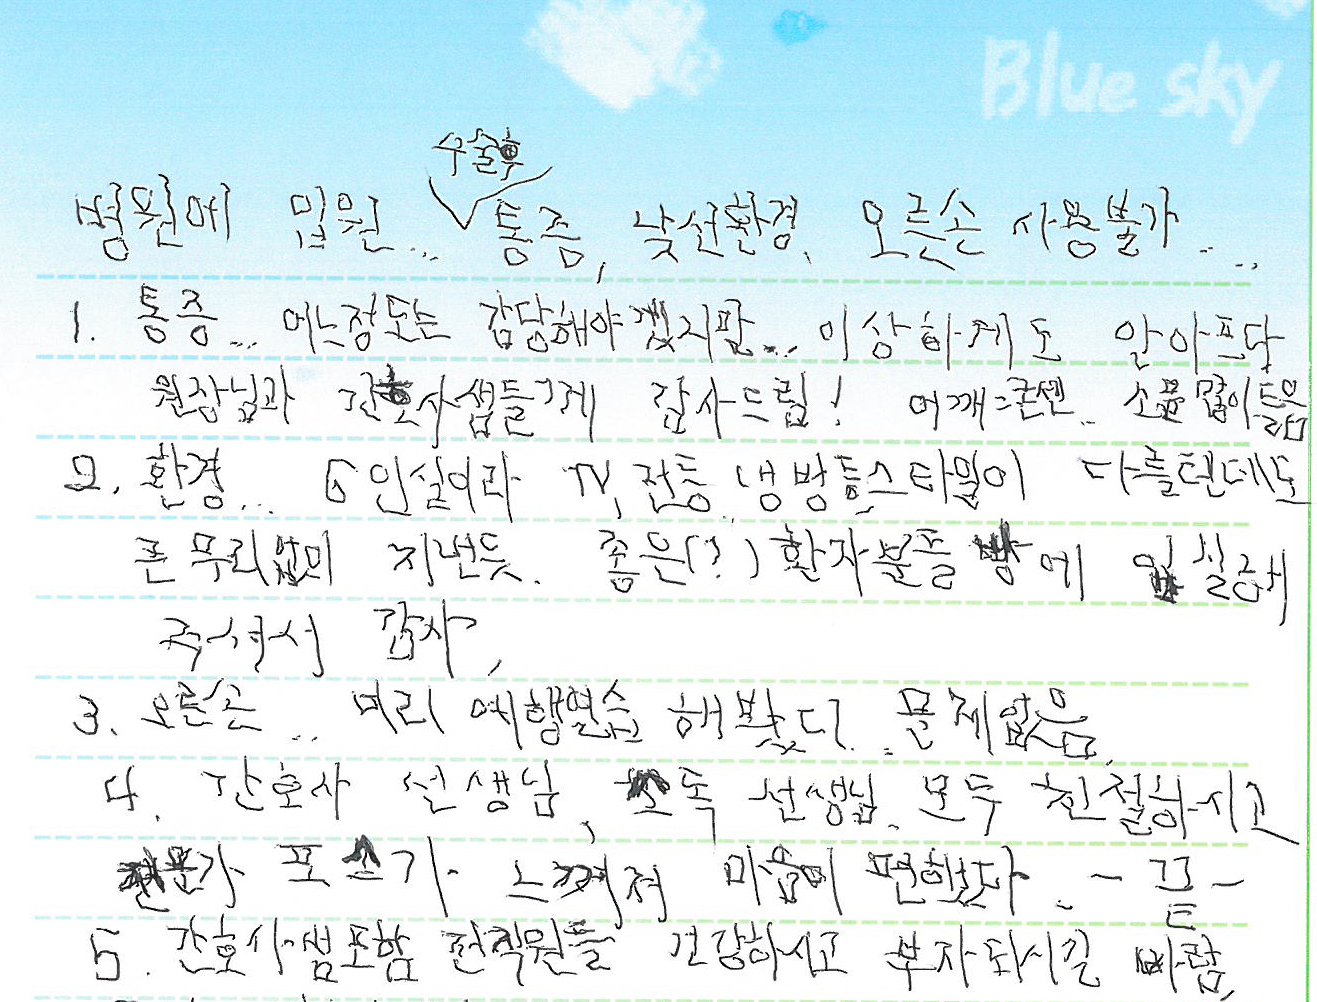 Blue sky
수술후
병원에 입원... 통증, 낯선환경. 오른손 사용불가...
1. 통증... 어느정도는 감당해야겠지만... 이상하게도 안아프다
원장님과 간호사샘들께 감사드림! 어깨는콘센.. 소품 많이들음
2. 환경... 6인실이라 TV, 전등, 냉방등스타일이 다를텐데도
큰무리없이 지낸듯. 좋은(?) 환자분들 방에 입실하게
해주셔서 감사,
3. 오른손... 미리 예행연습 해봤더니.. 문제없음.
4. 간호사 선생님, 선생님. 모두 친절하시고
전문가 포스가. 느껴져 마음이 편했다.. - 끝 -
5. 간호사샘포함 전직원들 건강하시고 부자되시길 바람.